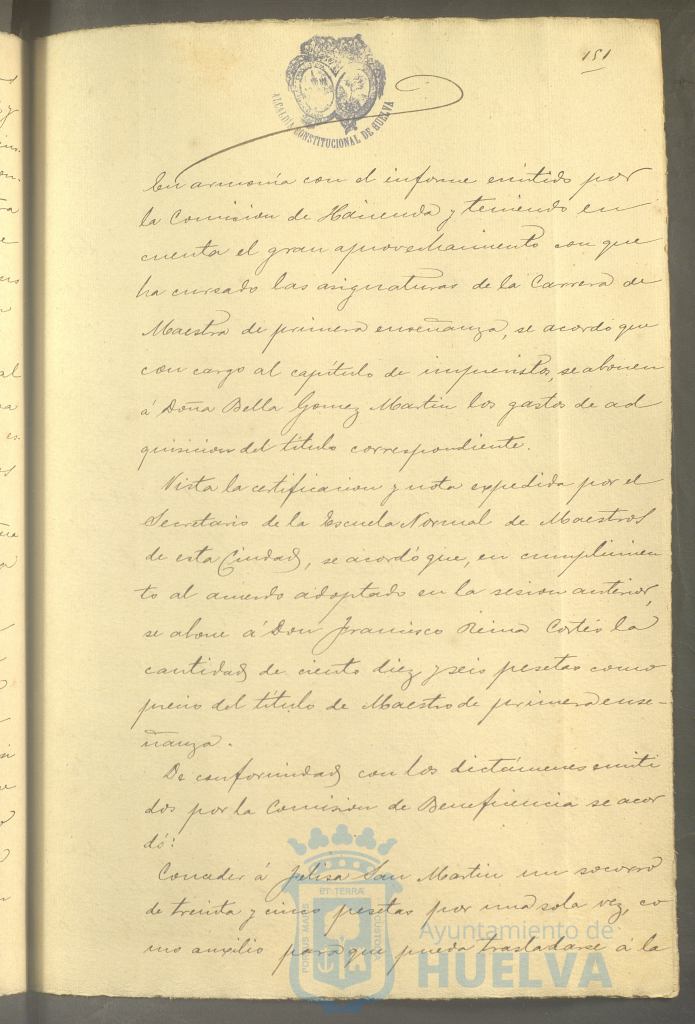 151
ALCALDÍA CONSTITUCIONAL DE HUELVA
En armonía con el informe emitido por
la Comision de Hacienda y teniendo en
cuenta el gran aprovechamiento con que
ha cursado las asignaturas de la Carrera de
Maestra de primera enseñanza, se acordó que
con cargo al capítulo de imprevistos, se abonen
á Doña Bella Gomez Martin los gastos de ad
quisicion del título correspondiente.
Vista la certificacion y nota expedida por el
Secretario de la Escuela Normal de Maestros
de esta Ciudad, se acordó que, en cumplimien
to al acuerdo adoptado en la sesion anterior,
se abone á Don Francisco Reina Cortés la
cantidad de ciento diez y seis pesetas como
precio del título de Maestro de primera ense-
ñanza.
De conformidad con los dictámenes emiti
dos por la Comision de Beneficencia se acor
dó:
Conceder á Felisa San Martin un socorro
de treinta y cinco pesetas por una sola vez, co
mo auxilio para que pueda trasladarse á la
PORTUS MARIS ET TERRÆ CUSTODIA
Ayuntamiento de
HUELVA